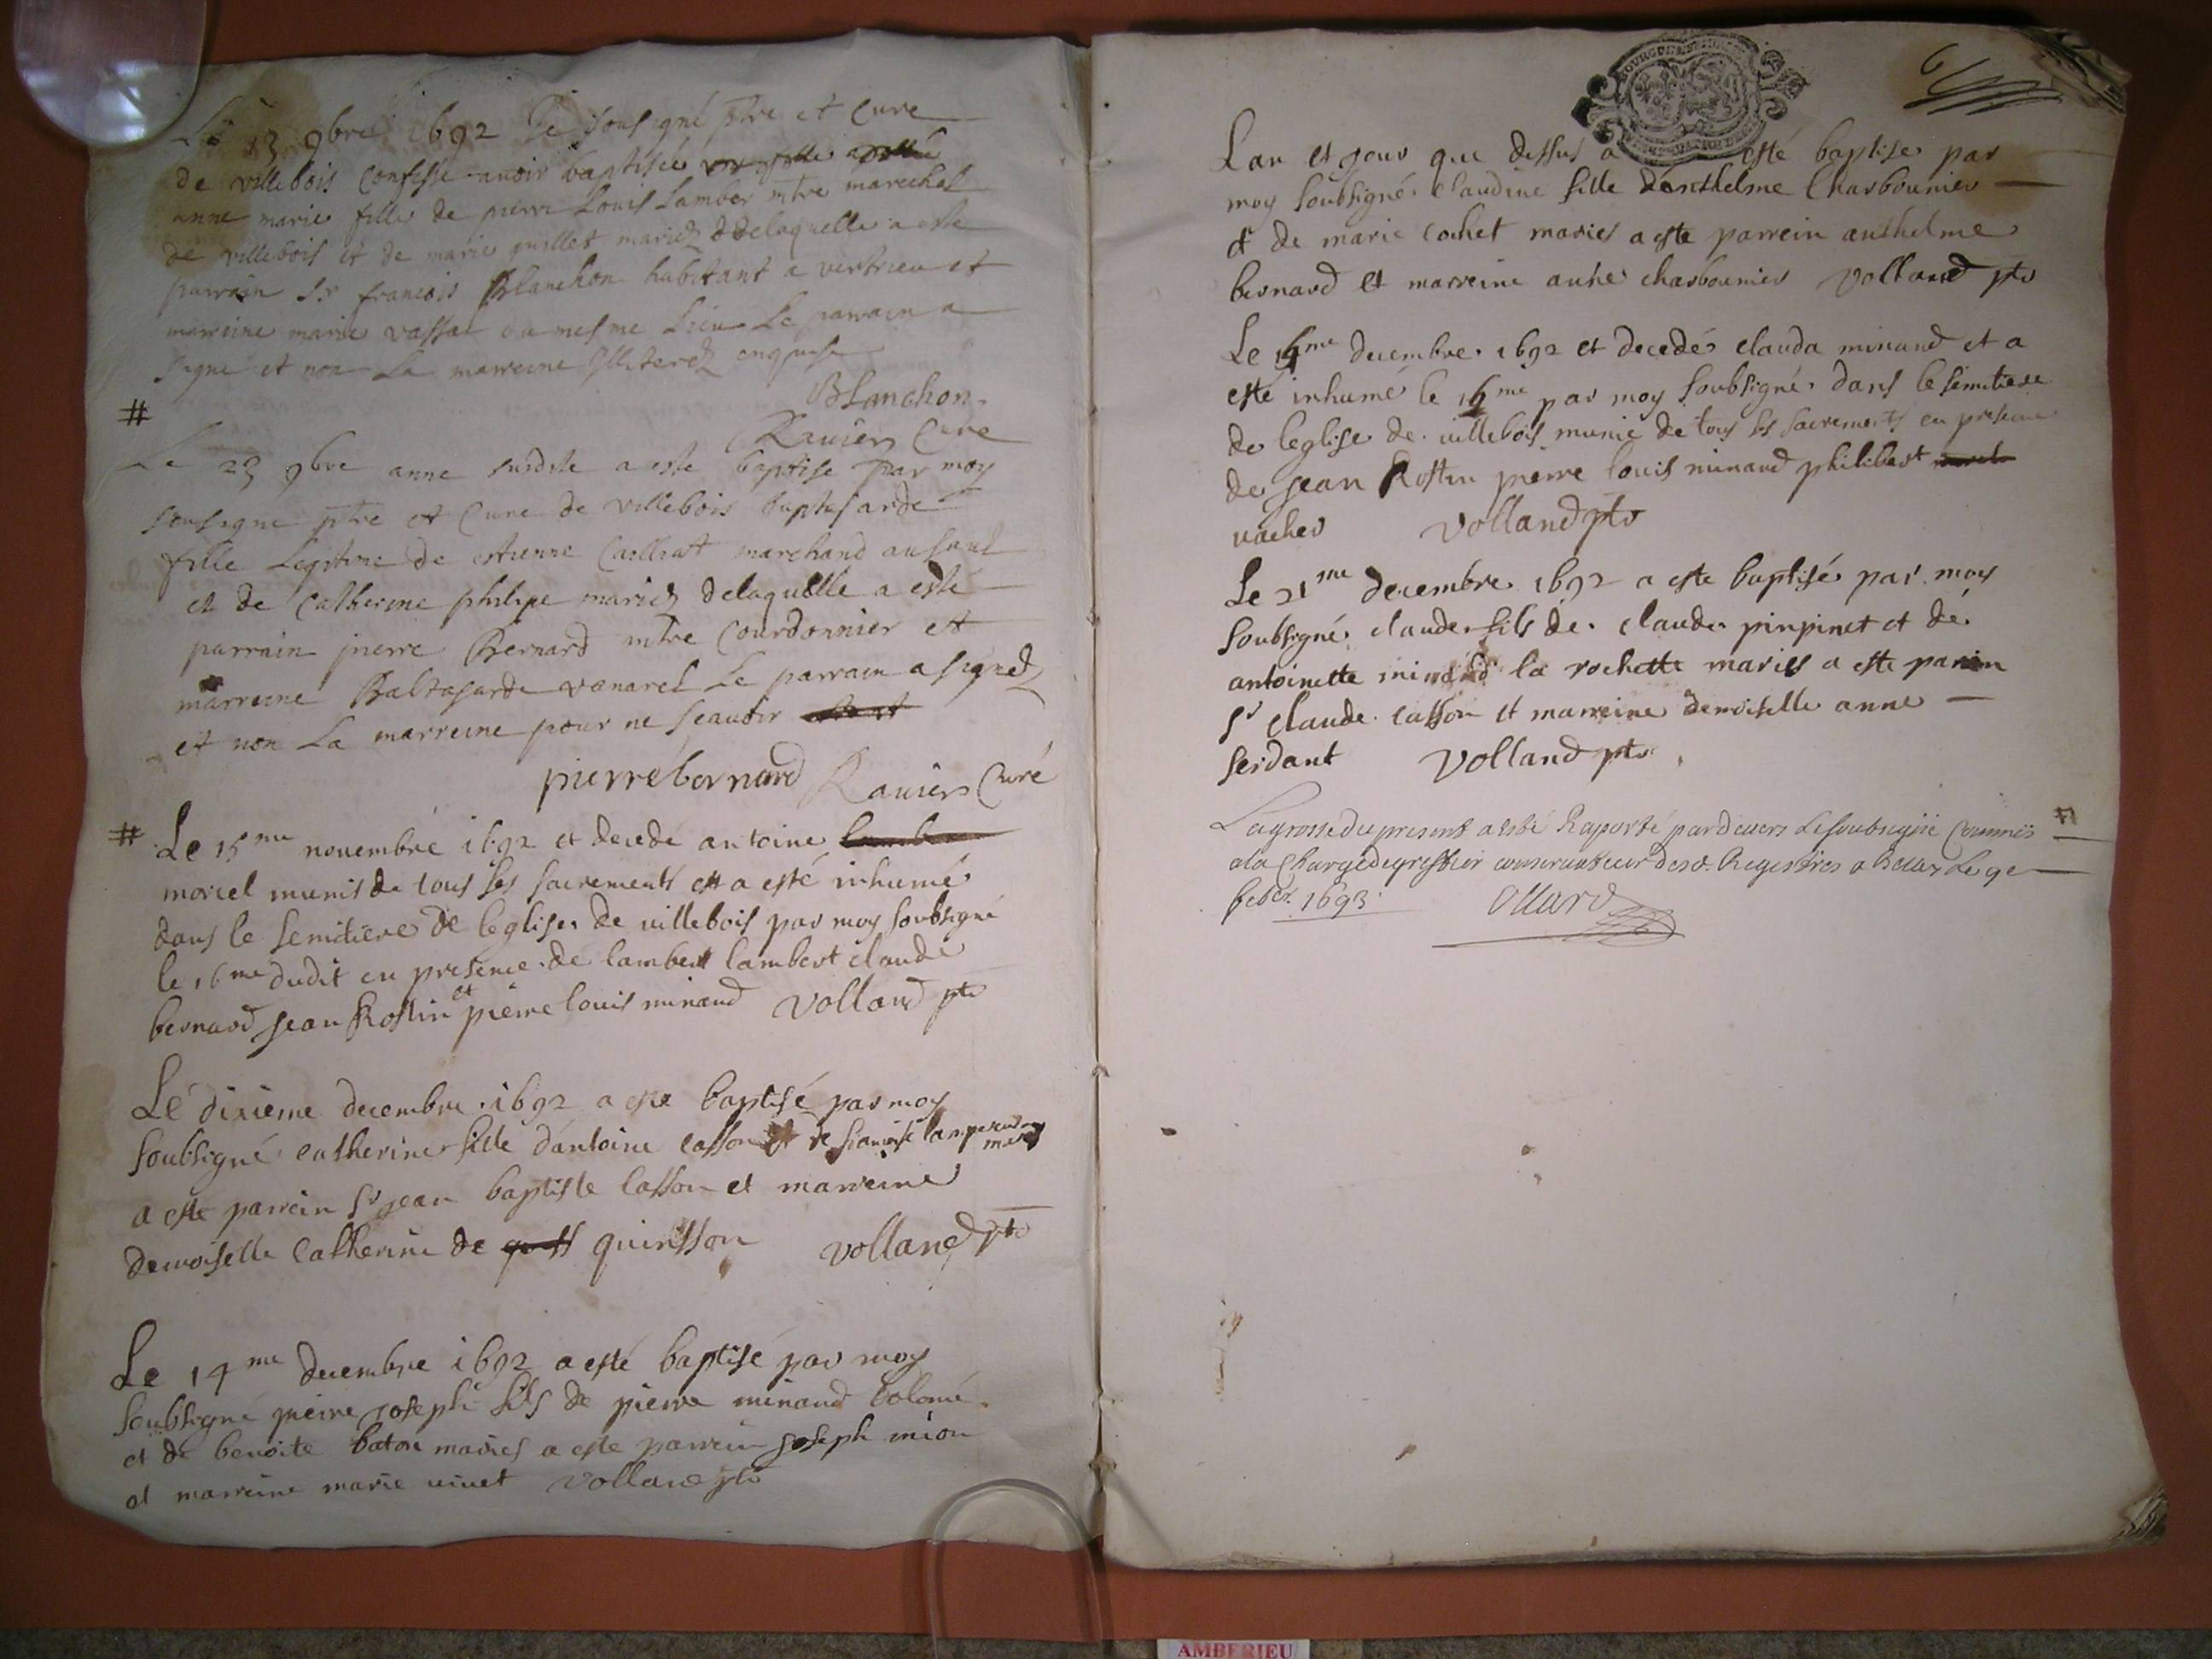 Le 13 9bre 1692 Je sousigné ptre et Cure
de villebois Confesse auoir baptisée
anne marie fille de pierre Louis Lamber mtre marechal
de villebois et de marie guillet mariez delaquelle a este
parrain Sr francois Blanchon habitant a vertrieu et
marreine marie vassal du mesme Lieu Le parrain a
signe et non La marreine Illiterez enquise
Blanchon
Rauier Cure
#
Le 23 9bre anne susdite a este baptise par moy
sousigne ptre et Cure de villebois
fille Legitime de estienne Cailliat marchand au sault
et de Catherine philipe mariez delaquelle a esté
parrain pierre Bernard mtre Courdonnier et
marreine Baltasarde vanarel Le parrain a signez
et non La marreine pour ne scauoir
pierre bernard Rauier Curé
# Le 15me nouembre 1692 et decede antoine
morel munis de tous ses sacrements et a esté inhumé
dans le semitiere de leglise de uillebois par moy soubsigné
le 16me dudit en presence de lambert lambert claude
bernard jean Rostin et pierre louis minand Volland ptr
Lé dixieme decembre 1692 a este baptisé par moy
soubsigné catherine fille dantoine Casson et de
a este parrein Sr jean baptiste Casson et marreine
demoiselle Catherine de quinsson Volland ptr
Le 14me decembre 1692 a esté baptisé par moy
soubsigné pierre joseph fils de pierre minand
et de benoite baton mariés a este parrein joseph mion
et marreine marie uiuet Volland ptr
6
Lan et jour que dessus a esté baptise par
moy soubsigné Claudine fille danthelme Charbounier
et de marie Cochet mariés a este parrein anthelme
bernard et marreine anne charbounier Volland ptr
Le me decembre 1692 et decedé clauda minand et a
esté inhumé le 16me par moy soubsigné dans le semitiere
de leglise de uillebois munie de tous ses sacrements en presence
de jean Rostin pierre louis minand philibert
uacher Volland ptr
Le 21me decembre 1692 a este baptisé par moy
soubsigné claude fils de claude pinpinet et dé
antoinette la rochette mariés a este parrein
Sr claude casson et marreine demoiselle anne
serdant Volland ptr
La grosse du present a esté Raporté pardeuers Le soubsigné Commis
a la Charge de greffier conseruateur desd. Registres a Le 9e
feber 1693